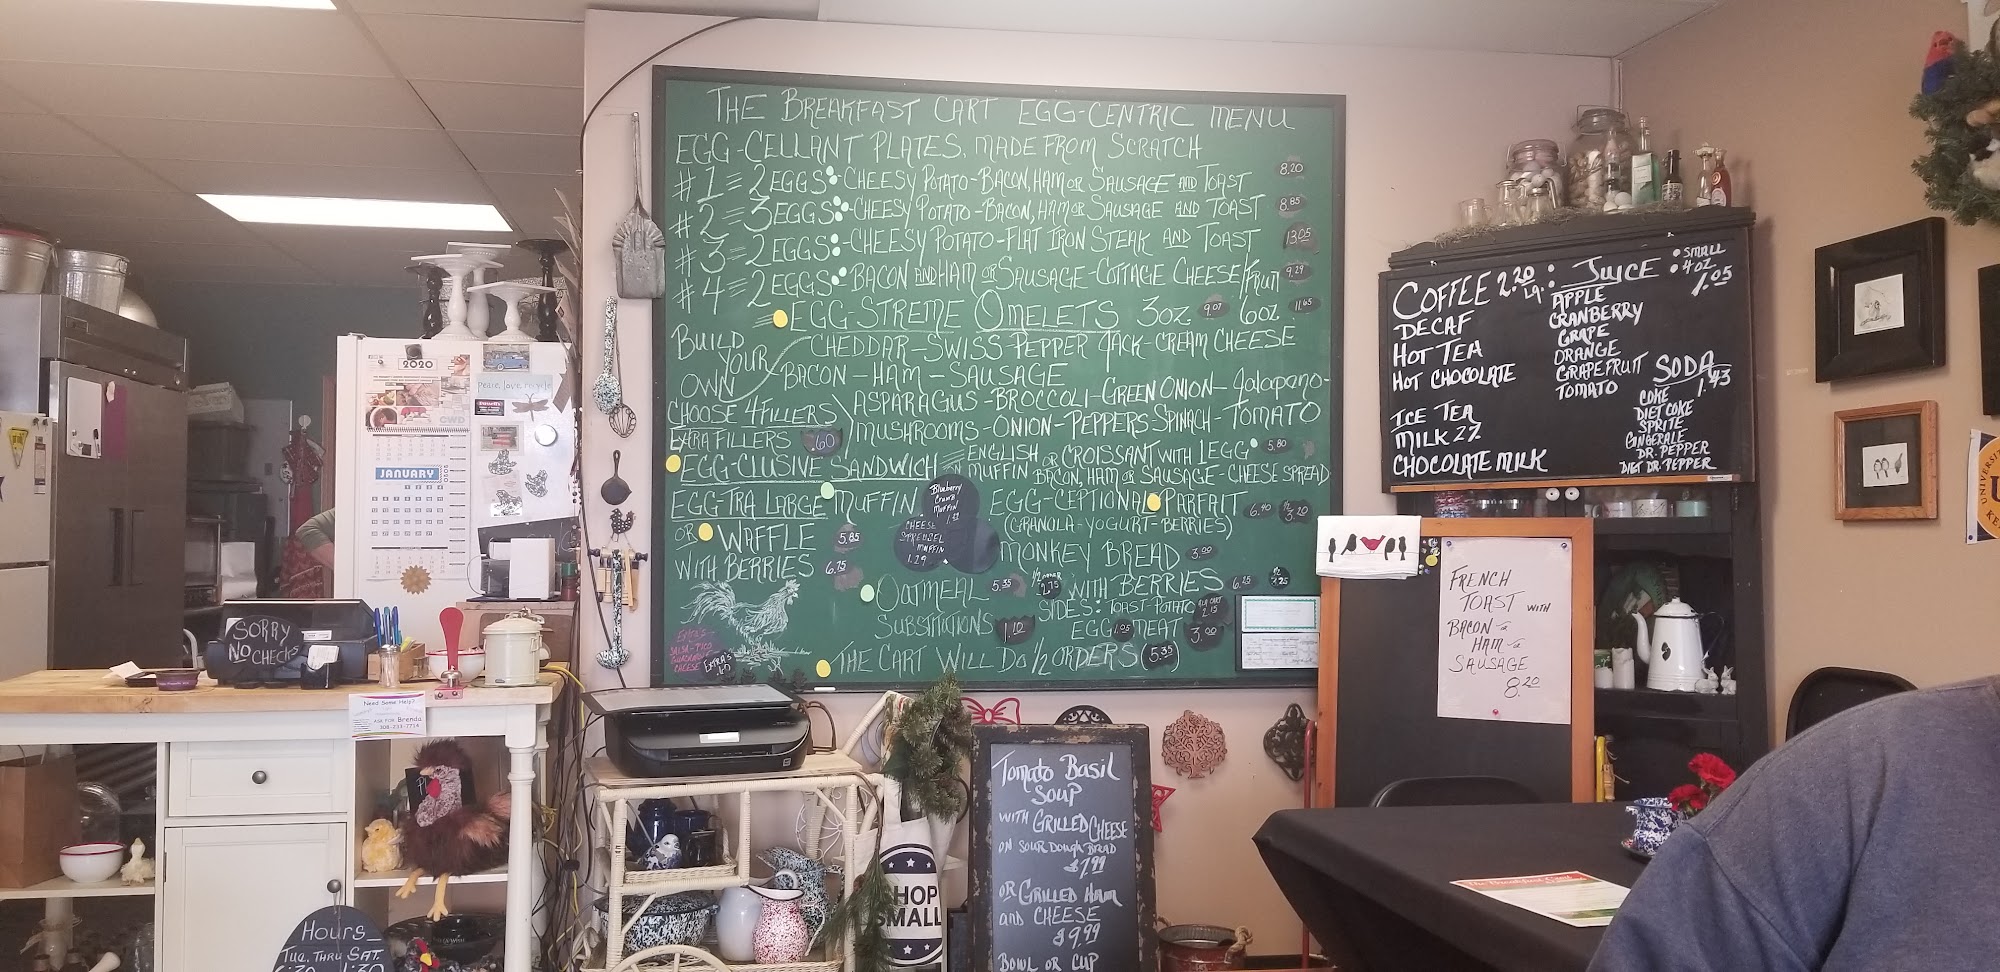 THE BREAKFAST CART EGG-CENTRIC MENU
EGG-CELLANT PLATES, MADE FROM SCRATCH
#1= 2 EGGS -CHEESY POTATO-BACON, HAM OR SAUSAGE AND TOAST 8.20
#2= 3 EGGS -CHEESY POTATO-BACON, HAM OR SAUSAGE AND TOAST 8.85
#3= 2 EGGS -CHEESY POTATO-FLAT IRON STEAK AND TOAST 13.05
#4= 2 EGGS BACON AND HAM OR SAUSAGE-COTTAGE CHEESE/FRUIT 9.29
EGG-STREME OMELETS 3oz 9.07 6oz 11.65
BUILD YOUR OWN
CHEDDAR-SWISS-PEPPER JACK-CREAM CHEESE
BACON-HAM-SAUSAGE
CHOOSE 4 FILLERS
ASPARAGUS-BROCCOLI-GREEN ONION-Jalapano-
MUSHROOMS-ONION-PEPPERS SPINACH-TOMATO
EXTRA FILLERS .60
EGG-CLUSIVE SANDWICH = ENGLISH MUFFIN OR CROISSANT WITH 1 EGG 5.80
BACON, HAM OR SAUSAGE-CHEESE SPREAD
EGG-TRA LARGE MUFFIN
Blueberry
Crumb
Muffin
CHEESE
STREUSEL
MUFFIN
1.29
OR WAFFLE 5.85
WITH BERRIES 6.75
EGG-CEPTIONAL PARFAIT 6.40 1/2 3.20
(GRANOLA-YOGURT-BERRIES)
MONKEY BREAD 3.00
OATMEAL 5.35 2.75 WITH BERRIES 6.25
SIDES: TOAST POTATO 2.15
SUBSTITUTIONS 1.10 EGG 1.05 MEAT 3.00
THE CART WILL DO 1/2 ORDERS (5.35)
EXTRA'S
SALSA-PICO
GUACAMOLE
CHEESE
EXTRA'S
.60
COFFEE 2.20 Lg.
DECAF
HOT TEA
HOT CHOCOLATE
ICE TEA
MILK 2%
CHOCOLATE MILK
JUICE : SMALL
4oz
1.05
APPLE
CRANBERRY
GRAPE
ORANGE
GRAPEFRUIT
TOMATO
SODA
1.43
COKE
DIET COKE
SPRITE
GINGERALE
DR. PEPPER
DIET DR. PEPPER
FRENCH
TOAST WITH
BACON or
HAM or
SAUSAGE
8.20
Tomato Basil
Soup
WITH GRILLED CHEESE
ON SOUR DOUGH BREAD
$7.99
OR GRILLED HAM
AND CHEESE
$9.99
BOWL OR CUP
SORRY
NO CHECKS
Need Some Help?
ASK FOR Brenda
308-233-7714
2020
GWD
JANUARY
peace, love, recycle
SHOP
SMALL
Hours
TUE. THRU SAT.